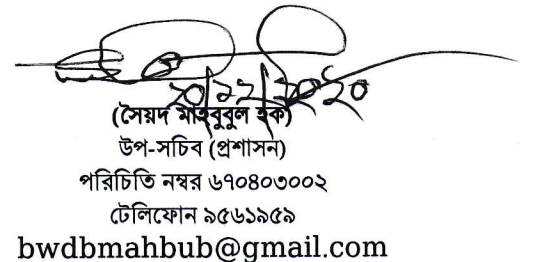 ২০/১২/২০২০
(সৈয়দ মাহবুবুল হক)
উপ-সচিব (প্রশাসন)
পরিচিতি নম্বর ৬৭০৪০৩০০২
টেলিফোন ৯৫৬১৯৫৯
bwdbmahbub@gmail.com